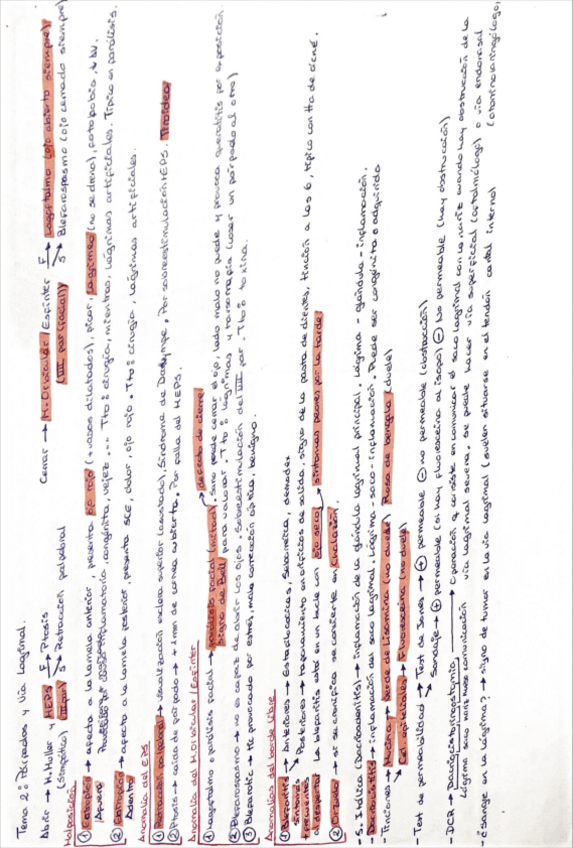 Tema 2: Párpados y Vía Lagrimal.
Abrir → M. Müller y MEPS F→ Ptosis Cerrar → M. Orbicular / Espinter F→ Lagoftalmo (ojo abierto siempre)
(simpático) (III par) S→ Retracción palpebral (VII par (facial)) S→ Blefarospasmo (ojo cerrado siempre)
Malposición
① Entropion → afecta a la lamela anterior, presenta ojo rojo (+ vasos dilatados), picor, lagrimeo (no se drena), fotofobia, ↓ AV.
inflamatorio, congénita, vejez ... Tto: cirugía, mientras, lágrimas artificiales. Típico en parálisis.
② Entropion → afecta a la lamela posterior, presenta SCE, dolor, ojo rojo. Tto: cirugía, lágrimas artificiales.
Dentro
Anomalía del EPS
① Retracción palpebral → visualización esclera superior (asustado), Síndrome de Dalrympe. Por sobreestimulación MEPS. Tiroidea
② Ptosis → caída de párpado → + 2mm de córnea cubierta. Por falla del MEPS.
Anomalía del M. Orbicular / Espinter
→ defecto de cierre
① Lagoftalmo o parálisis facial → parálisis facial (mitad), sano puede cerrar el ojo, lado malo no puede y provoca queratitis por exposición.
Signo de Bell para valorar. Tto: lágrimas y tarsorrapia (coser un párpado al otro)
② Blefarospasmo → no es capaz de abrir los ojos. Sobreestimulación del VII par. Tto: toxina.
③ Blefarotic → tic provocado por estrés, mala corrección óptica, benigno.
Anomalías del borde libre
① Blefaritis → Anteriores → Estafilocócicas, Seborreica, demodex
síntomas + frecuentes al despertar → Posteriores → taponamiento en orificios de salida, signo de la pasta de dientes, tinción a las 6, típico con Hª de acné.
La blefaritis está en un bucle con ojo seco → síntomas peores por la tarde
② Orzuelo → si se cronifica se convierte en Chalazión.
- S. Itálica (Dacrioadenitis) → inflamación de la glándula lagrimal principal. Lágrima - glándula - inflamación.
- Dacriocistitis → inflamación del saco lagrimal. Lágrima - saco - inflamación. Puede ser congénita o adquirida
- Tinciones → Mucina → Verde de Lisamina (no duele) Rosa de bengala (duele)
→ Cel. epiteliales → Fluoresceína (no duele)
- Test de permeabilidad → Test de Jones → ⊕ permeable ⊖ no permeable (obstrucción)
Sondaje → ⊕ permeable (si hay fluoresceína al isopo) ⊖ No permeable (hay obstrucción)
- DCR → Dacriocistorrinostomía → operación q. consiste en comunicar el saco lagrimal con la nariz cuando hay obstrucción de la
lágrima saco nariz nueva comunicación vía lagrimal severa, se puede hacer vía superficial (oftalmólogo) o vía endonasal
(otorrinolaringólogo)
- ¿Sangre en la lágrima? → signo de tumor en la vía lagrimal (suelen situarse en el tendón cantal interno)